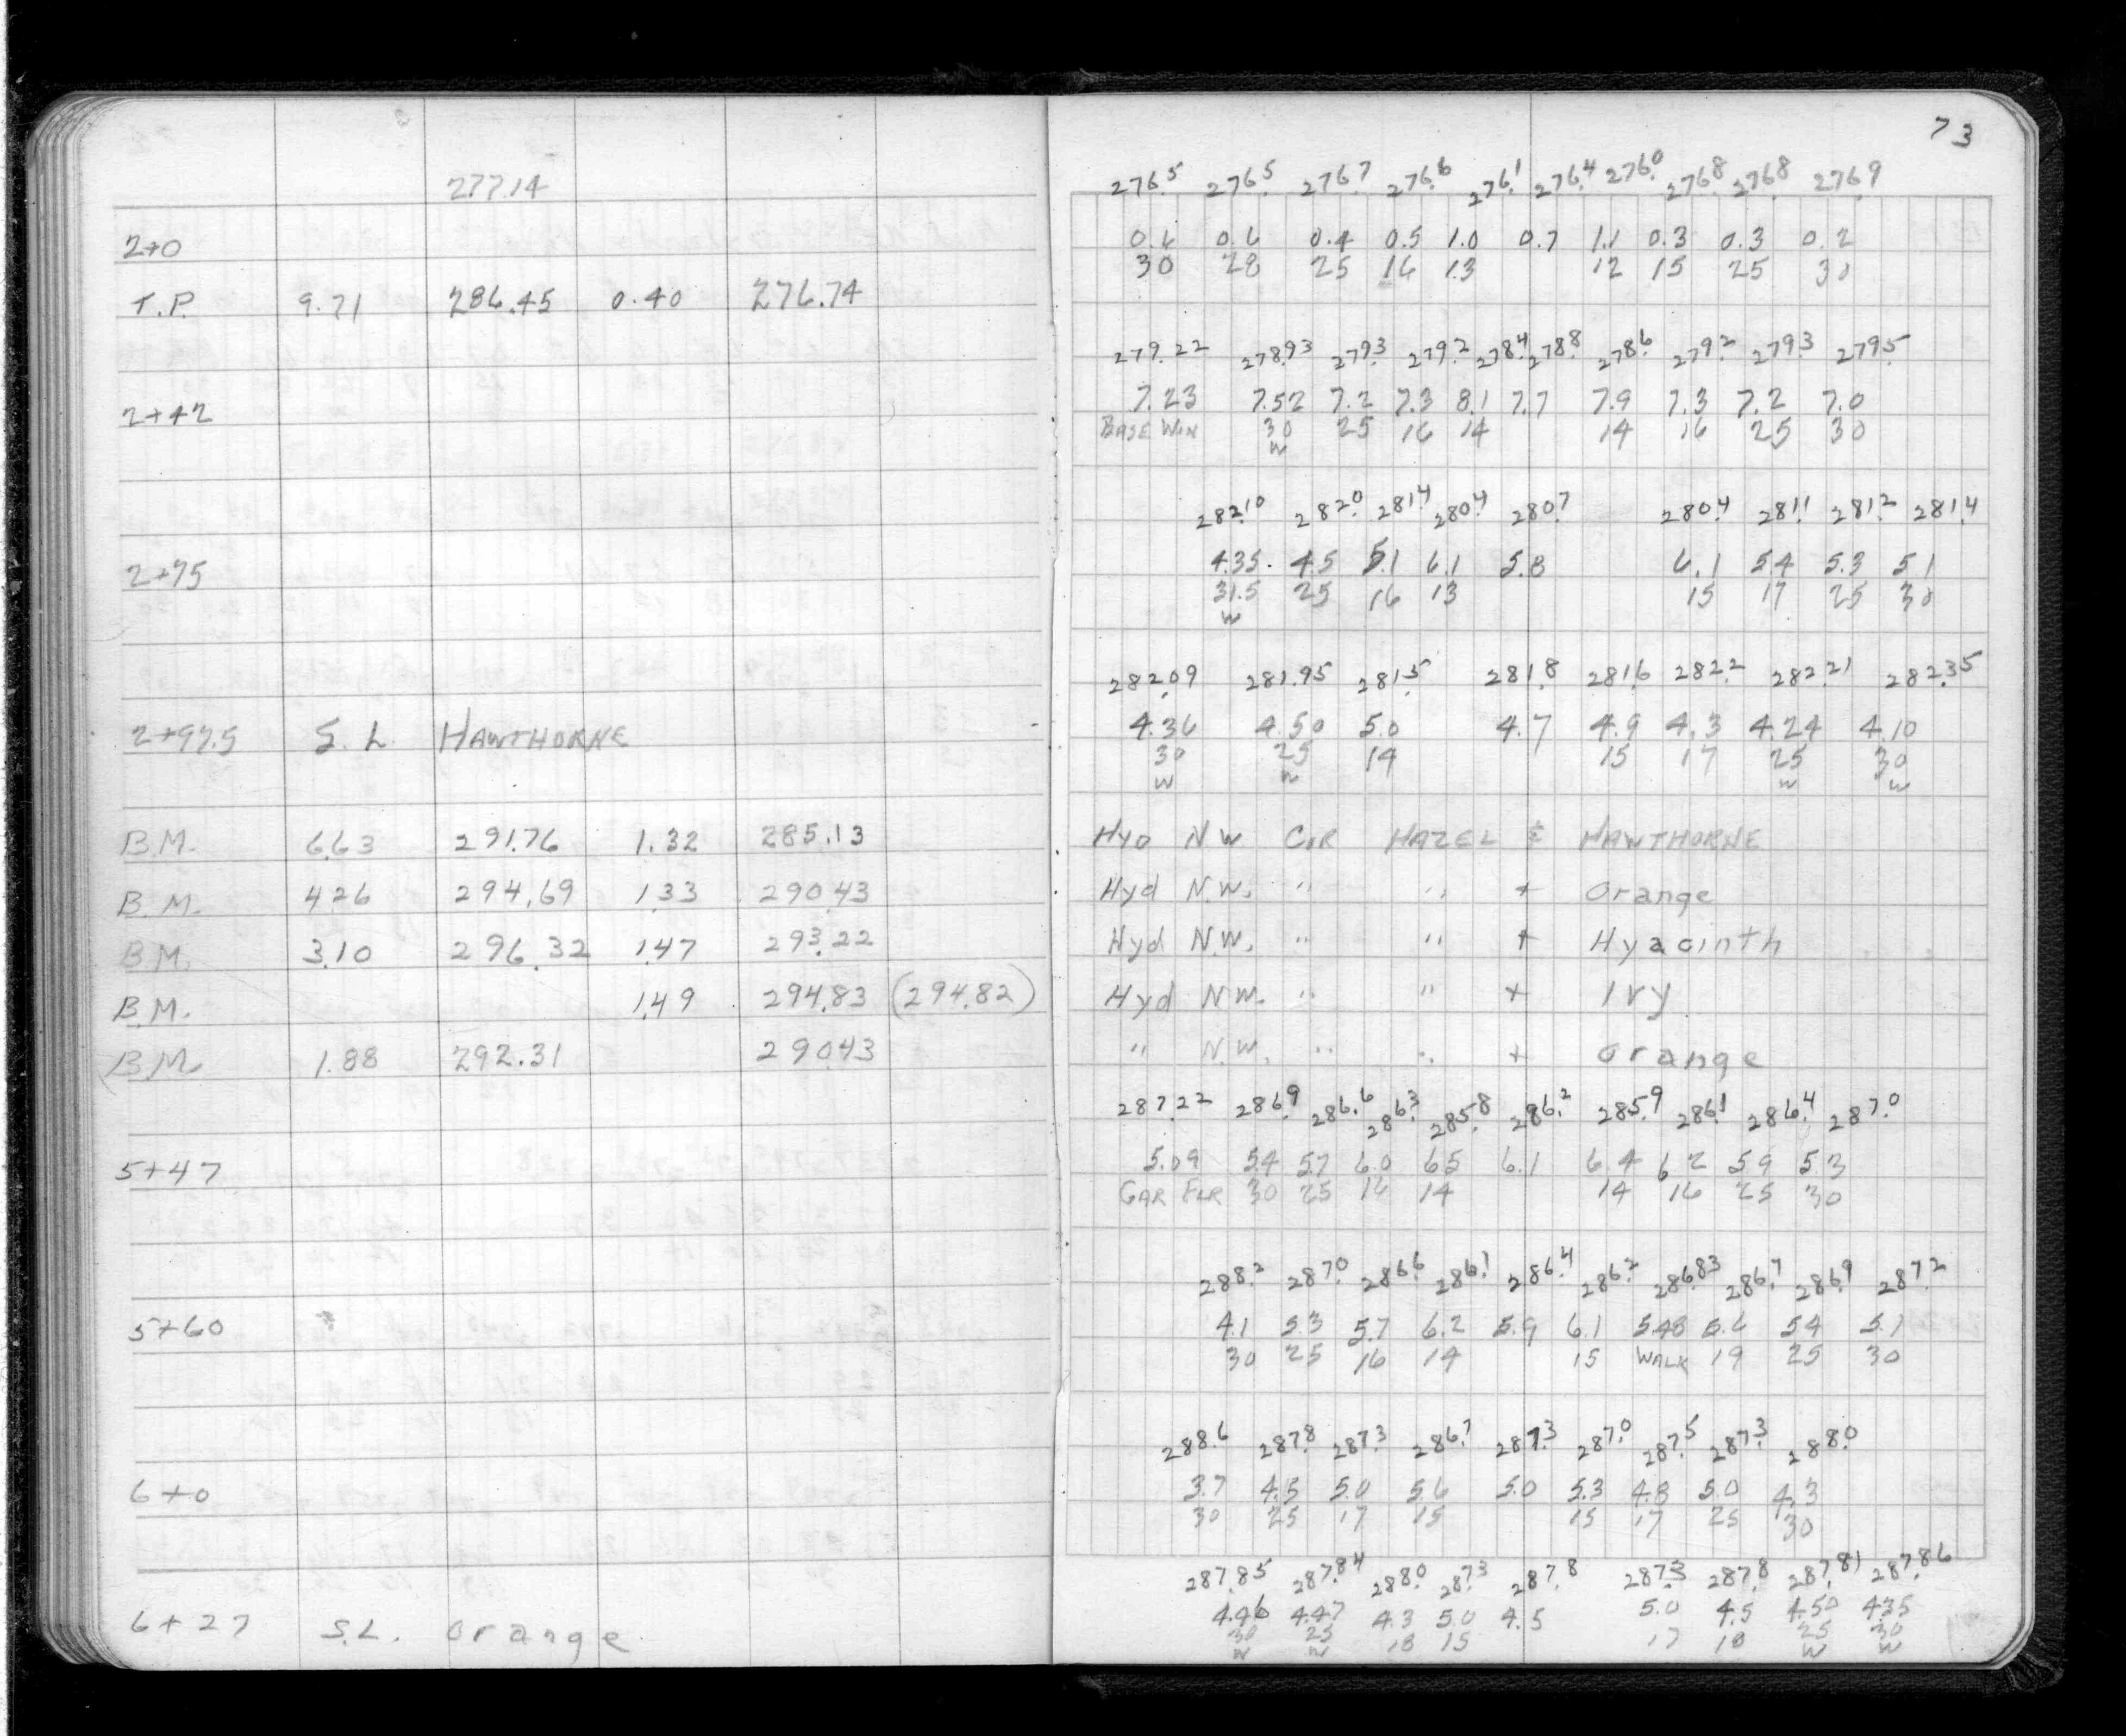 73
277.14
276.5 276.5 276.7 276.6 276.1 276.4 276.0 276.8 276.8 276.9
2+0 0.6 0.6 0.4 0.5 1.0 0.7 1.1 0.3 0.3 0.2
30 28 25 16 13 12 15 25 30
T.P. 9.71 286.45 0.40 276.74
279.22 278.93 279.3 279.2 278.4 278.8 278.6 279.2 279.3 279.5
2+42 7.23 7.52 7.2 7.3 8.1 7.7 7.9 7.3 7.2 7.0
BASE WIN 30 25 16 14 14 16 25 30
W
282.10 282.0 281.4 280.4 280.7 280.4 281.1 281.2 281.4
2+75 4.35 4.5 5.1 6.1 5.8 6.1 5.4 5.3 5.1
31.5 25 16 13 15 17 25 30
W
282.09 281.95 281.5 281.8 281.6 282.2 282.21 282.35
2+97.5 S.L. HAWTHORNE 4.36 4.50 5.0 4.7 4.9 4.3 4.24 4.10
30 25 14 15 17 25 30
W W W W
B.M. 6.63 291.76 1.32 285.13 Hyd N W COR HAZEL & HAWTHORNE
B.M. 4.26 294.69 1.33 290.43 Hyd N.W. " " + Orange
B.M. 3.10 296.32 1.47 293.22 Hyd N.W. " " + Hyacinth
B.M. 1.49 294.83 (294.82) Hyd N.W. " " + Ivy
B.M. 1.88 292.31 290.43 " N.W. " " + Orange
287.22 286.9 286.6 286.3 285.8 286.2 285.9 286.1 286.4 287.0
5+47 5.09 5.4 5.7 6.0 6.5 6.1 6.4 6.2 5.9 5.3
GAR FLR 30 25 16 14 14 16 25 30
288.2 287.0 286.6 286.1 286.4 286.2 286.83 286.7 286.9 287.2
5+60 4.1 5.3 5.7 6.2 5.9 6.1 5.48 5.6 5.4 5.1
30 25 16 14 15 WALK 19 25 30
288.6 287.8 287.3 286.7 287.3 287.0 287.5 287.3 288.0
6+0 3.7 4.5 5.0 5.6 5.0 5.3 4.8 5.0 4.3
30 25 17 15 15 17 25 30
287.85 287.84 288.0 287.3 287.8 287.3 287.8 287.81 287.86
6+27 S.L. Orange 4.46 4.47 4.3 5.0 4.5 5.0 4.5 4.50 4.35
30 25 18 15 17 18 25 30
W W W W